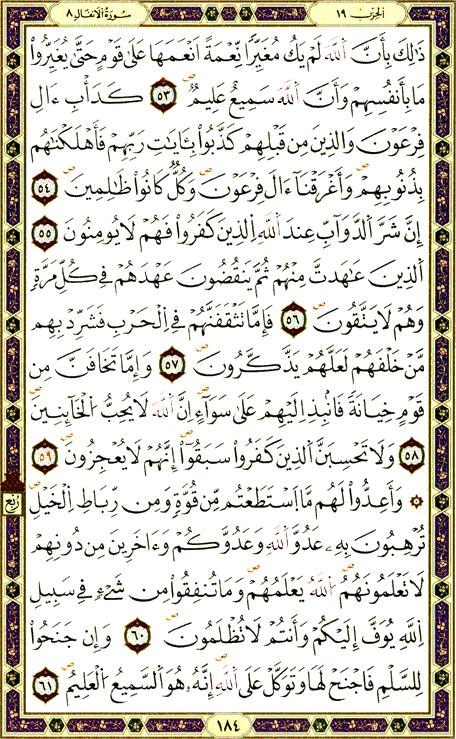 الحزب ١٩
سورة الأنفال ٨
ذَٰلِكَ بِأَنَّ اَ۬للَّهَ لَمْ يَكُ مُغَيِّراٗ نِّعْمَةً اَنْعَمَهَا عَلَىٰ قَوْمٍ حَتَّىٰ يُغَيِّرُواْ
مَا بِأَنفُسِهِمْ وَأَنَّ اَ۬للَّهَ سَمِيعٌ عَلِيمٞ ٥٣ كَدَأْبِ ءَالِ
فِرْعَوْنَ وَالذِينَ مِن قَبْلِهِمْ كَذَّبُواْ بِـَٔايَٰتِ رَبِّهِمْ فَأَهْلَكْنَٰهُم
بِذُنُوبِهِمْ وَأَغْرَقْنَا ءَالَ فِرْعَوْنَ وَكُلّٞ كَانُواْ ظَٰلِمِينَ ٥٤
إِنَّ شَرَّ اَ۬لدَّوَآبِّ عِندَ اَ۬للَّهِ اِ۬لذِينَ كَفَرُواْ فَهُمْ لَا يُومِنُونَ ٥٥
اَ۬لذِينَ عَٰهَدتَّ مِنْهُمْ ثُمَّ يَنقُضُونَ عَهْدَهُمْ فِي كُلِّ مَرَّةٖ
وَهُمْ لَا يَتَّقُونَ ٥٦ فَإِمَّا تَثْقَفَنَّهُمْ فِي اِ۬لْحَرْبِ فَشَرِّدْ بِهِم
مَّنْ خَلْفَهُمْ لَعَلَّهُمْ يَذَّكَّرُونَ ٥٧ وَإِمَّا تَخَافَنَّ مِن
قَوْمٍ خِيَانَةٗ فَانۢبِذِ اِلَيْهِمْ عَلَىٰ سَوَآءٍ اِنَّ اَ۬للَّهَ لَا يُحِبُّ اُ۬لْخَآئِنِينَ
٥٨ وَلَا تَحْسِبَنَّ اَ۬لذِينَ كَفَرُواْ سَبَقُواْ إِنَّهُمْ لَا يُعْجِزُونَ ٥٩
۞ وَأَعِدُّواْ لَهُم مَّا اَ۪سْتَطَعْتُم مِّن قُوَّةٖ وَمِن رِّبَاطِ اِ۬لْخَيْلِ
ربع
تُرْهِبُونَ بِهِۦ عَدُوَّ اَ۬للَّهِ وَعَدُوَّكُمْ وَءَاخَرِينَ مِن دُونِهِمْ
لَا تَعْلَمُونَهُمُ اُ۬للَّهُ يَعْلَمُهُمْ وَمَا تُنفِقُواْ مِن شَےْءٖ فِي سَبِيلِ
اِ۬للَّهِ يُوَفَّ إِلَيْكُمْ وَأَنتُمْ لَا تُظْلَمُونَ ٦٠ وَإِن جَنَحُواْ
لِلسَّلْمِ فَاجْنَحْ لَهَا وَتَوَكَّلْ عَلَى اَ۬للَّهِ إِنَّهُۥ هُوَ اَ۬لسَّمِيعُ اُ۬لْعَلِيمُ ٦١
١٨٤